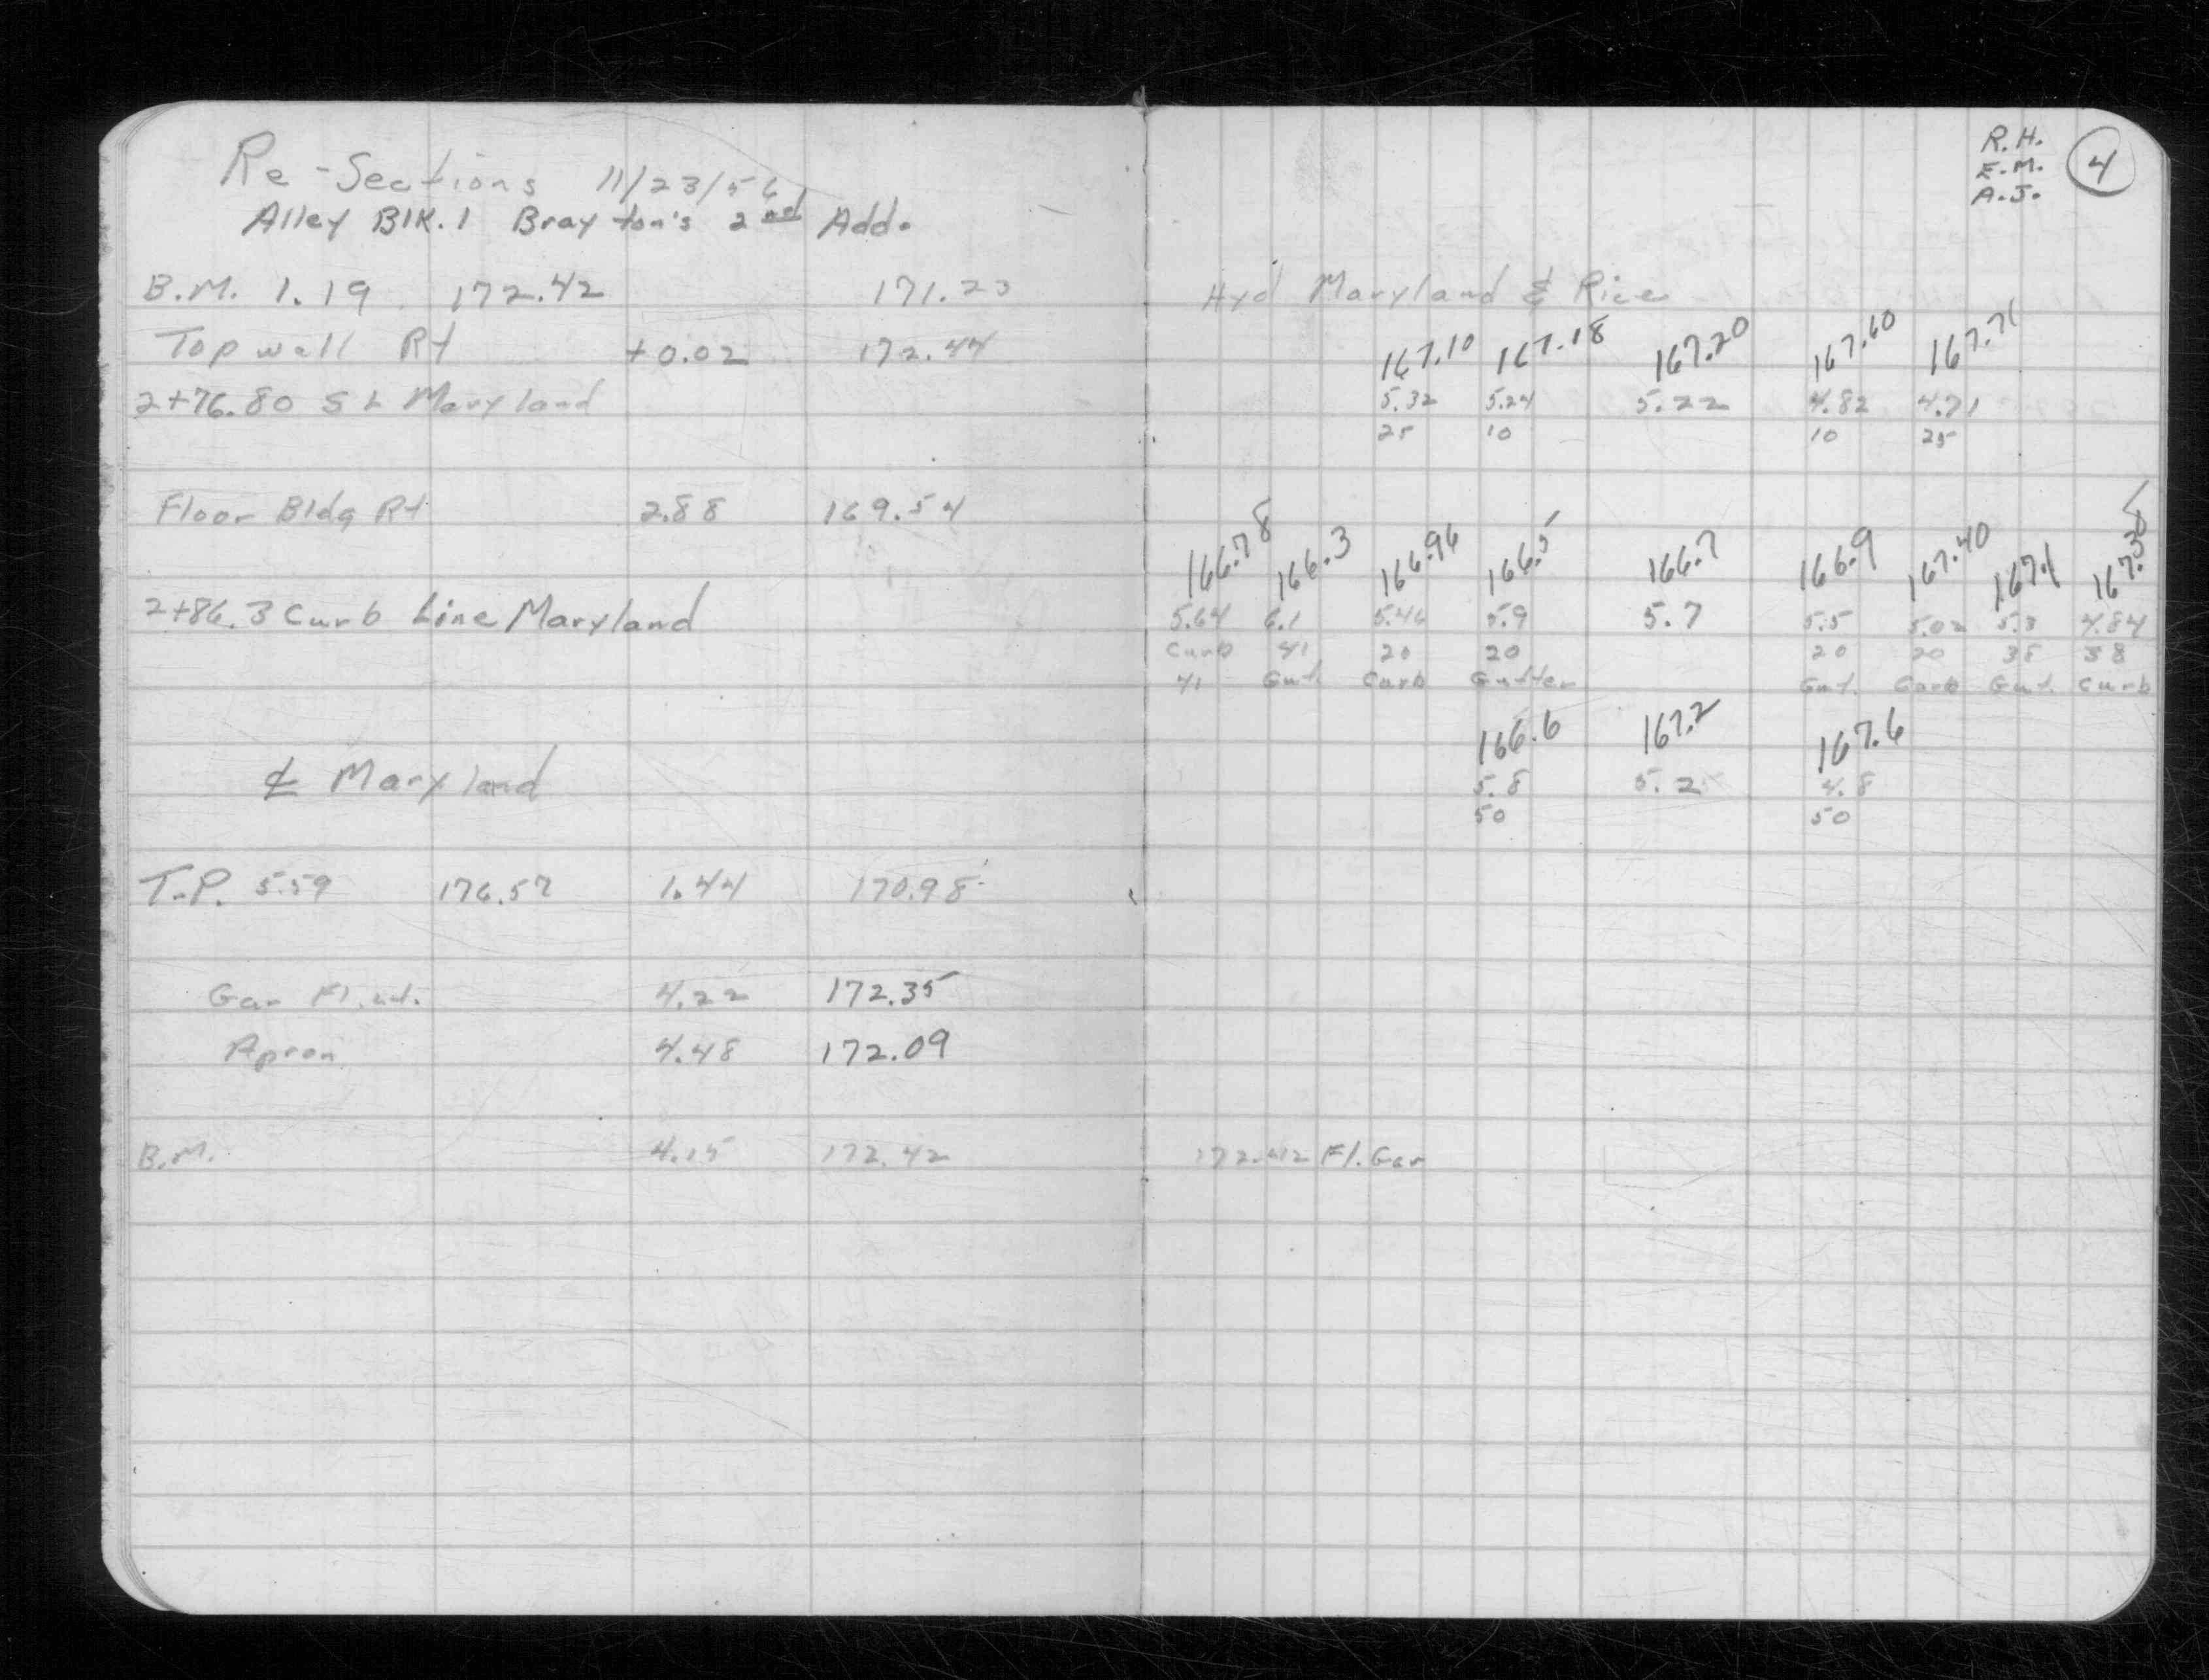 Re-Sections 11/23/56
Alley Blk. 1 Brayton's 2nd Add.
B.M. 1.19 172.42 171.23
Top wall Rt +0.02 172.44
2+76.80 S L Maryland
Floor Bldg Rt 2.88 169.54
2+86.3 Curb Line Maryland
℄ Maryland
T.P. 5.59 176.57 1.44 170.98
Gar Fl. 4.22 172.35
Apron 4.48 172.09
B.M. 4.15 172.42
R.H.
E.M.
A.J.
4
Hyd Maryland & Rice
167.10 167.18 167.20 167.60 167.71
5.32 5.24 5.22 4.82 4.71
25 10 10 25
166.78 166.3 166.96 166.5 166.7 166.9 167.40 167.1 167.58
5.64 6.1 5.46 5.9 5.7 5.5 5.02 5.3 4.84
Curb 41 20 20 20 20 38 38
41 Gut. Curb Gutter Gut. Curb Gut. Curb
166.6 167.2 167.6
5.8 5.2 4.8
50 50
172.412 Fl. Gar